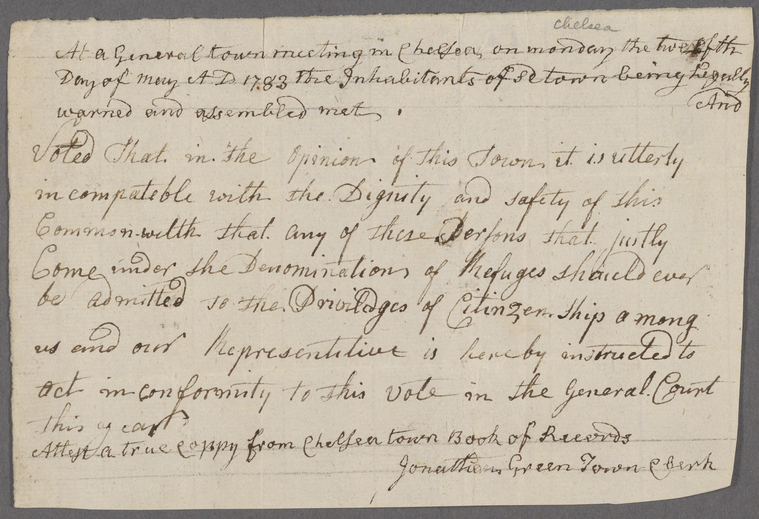 Chelsea
At a General town meeting in Chelsea on monday the twelfth
Day of may A D. 1783 the Inhabitants of sd town being Legally
warned and assembled met. And
Voted That in the opinion of this Town it is utterly
incompateble with the Dignity and safety of this
Common-welth that any of these Persons that justly
Come under the Denomination of Refuges should ever
be admitted to the Priviledges of Citinzen ship among
us and our Representitive is hereby instructed to
act in conformity to this vote in the General Court
this year
Attest a true coppy from Chelsea town Book of Records
Jonathan Green Town Clerk